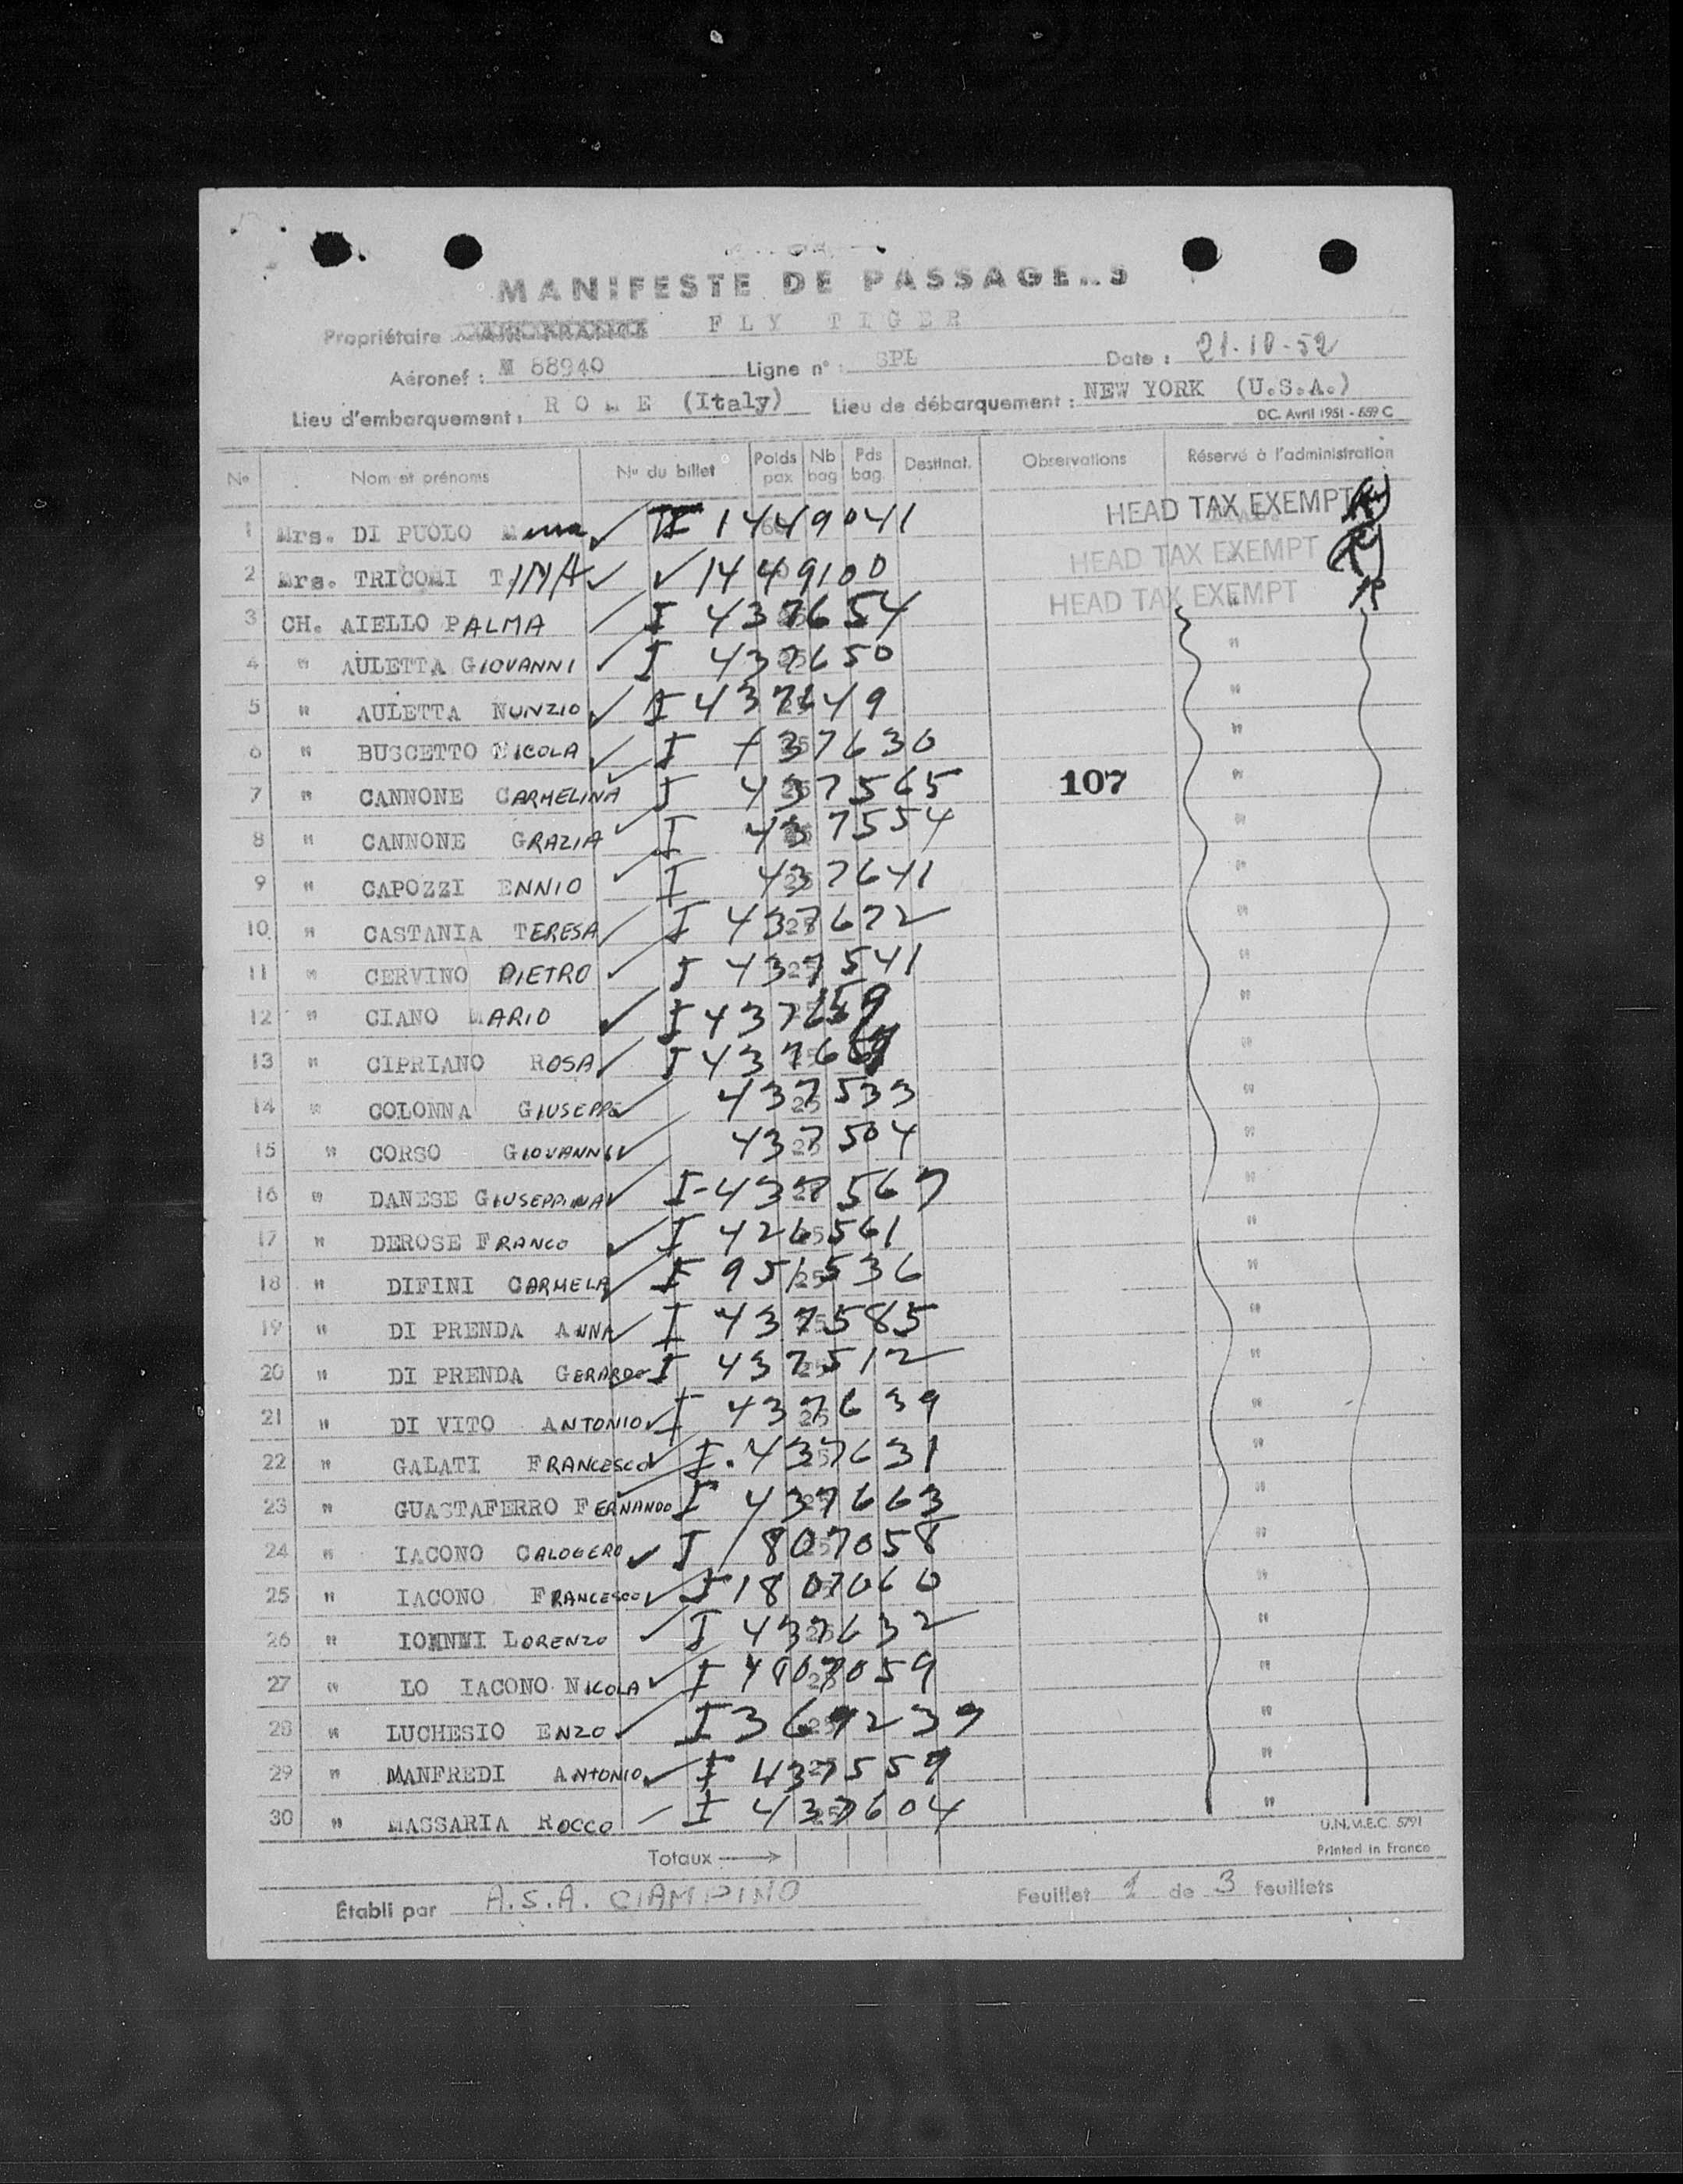 MANIFESTE DE PASSAGE..S
Propriétaire FLY TIGER
Aéronef : N 88940 Ligne n° : SPL Date : 21-10-52
Lieu d'embarquement : ROME (Italy) Lieu de débarquement : NEW YORK (U.S.A.)
DC. Avril 1951 - 659 C
No Nom et prénoms No du billet Poids pax Nb bag Pds bag. Destinat. Observations Réservé à l'administration
1 Mrs. DI PUOLO I 1449041 HEAD TAX EXEMPT
2 Mrs. TRICOMI TINA 1449100 HEAD TAX EXEMPT
3 CH. AIELLO PALMA I 437654 HEAD TAX EXEMPT
4 " AULETTA GIOVANNI I 437650 "
5 " AULETTA NUNZIO I 437649 "
6 " BUSCETTO NICOLA I 437630 "
7 " CANNONE CARMELINA I 437565 107 "
8 " CANNONE GRAZIA I 437554 "
9 " CAPOZZI ENNIO I 437641 "
10 " CASTANIA TERESA I 437672 "
11 " CERVINO PIETRO I 437541 "
12 " CIANO MARIO I 437659 "
13 " CIPRIANO ROSA I "
14 " COLONNA GIUSEPPE 437533 "
15 " CORSO GIOVANNI 437504 "
16 " DANESE GIUSEPPINA I-437567 "
17 " DEROSE FRANCO I 426561 "
18 " DIFINI CARMELA I 951536 "
19 " DI PRENDA ANNA I 437585 "
20 " DI PRENDA GERARDO I 437512 "
21 " DI VITO ANTONIO I 437639 "
22 " GALATI FRANCESCO I. 437631 "
23 " GUASTAFERRO FERNANDO I 437663 "
24 " IACONO CALOGERO I 1807058 "
25 " IACONO FRANCESCO I 1807060 "
26 " LORENZO I 437632 "
27 " LO IACONO NICOLA I "
28 " LUCHESIO ENZO I "
29 " MANFREDI ANTONIO I 437559 "
30 " MASSARIA ROCCO I 437604 "
U.N.M.E.C. 5791
Totaux → Printed in France
Établi par A.S.A. CIAMPINO Feuillet 1 de 3 feuillets